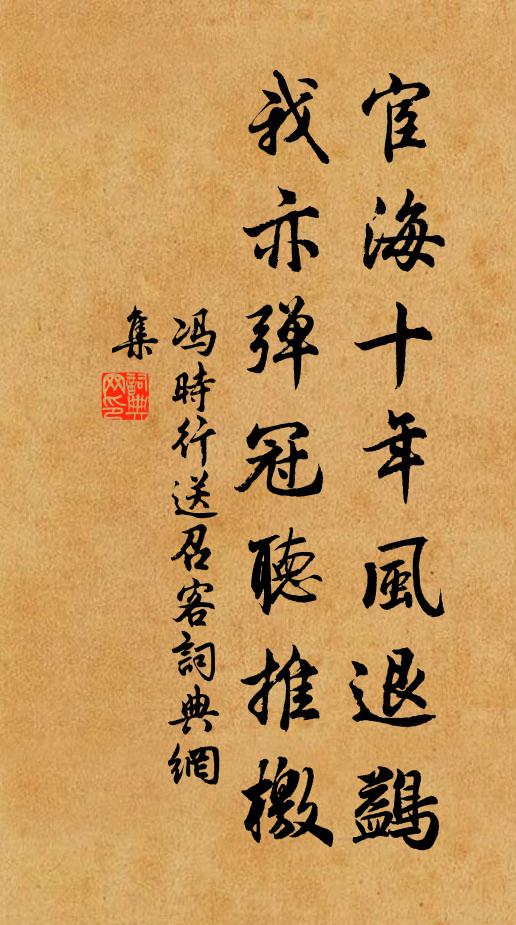 宦海十年風退鷁
我亦弹冠聽推檄
冯時行送召客詞典網
集
詞典網印